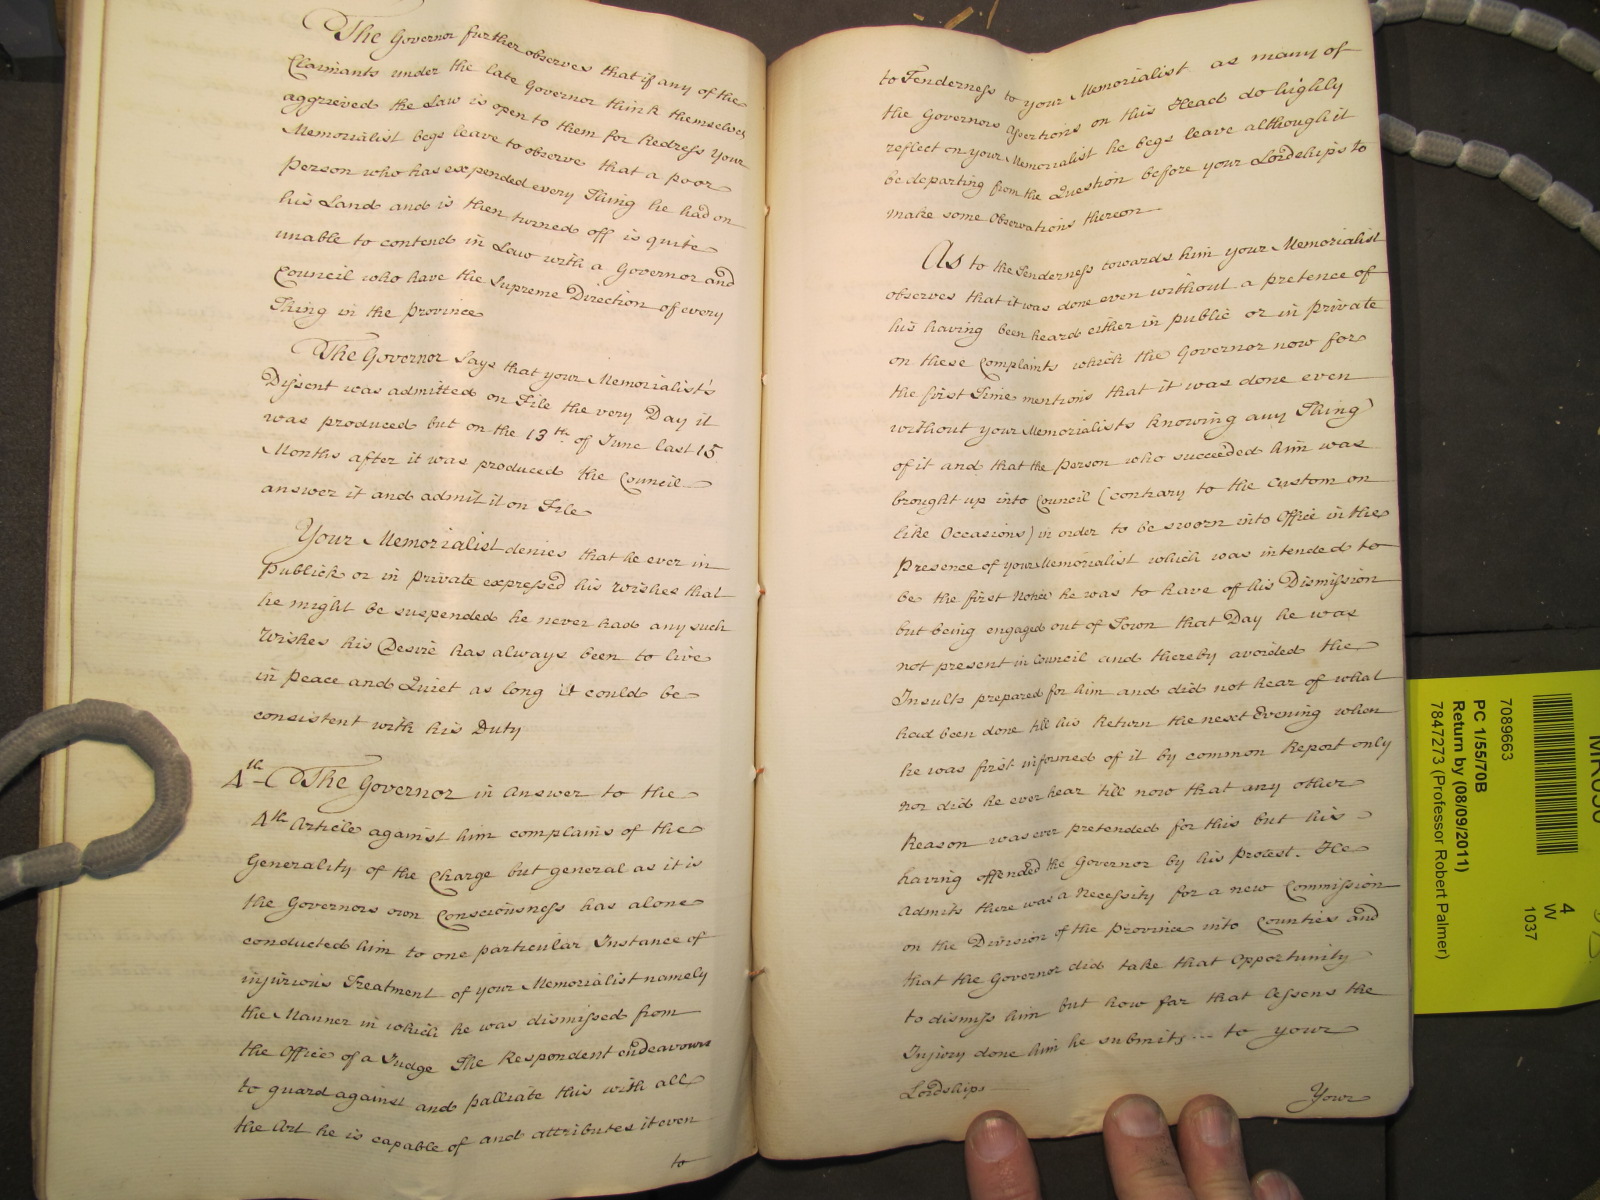 The Governor further observes that if any of the
Claimants under the late Governor think themselves
aggrieved the Law is open to them for Redress Your
Memorialist begs leave to observe that a poor
Person who has expended every Thing he had on
his Land and is then turned off is quite
unable to contend in Law with a Governor and
Council who have the Supreme Direction of every
Thing in the Province
The Governor says that your Memorialist's
Dissent was admitted on File the very Day it
was produced but on the 13th of June last 15
Months after it was produced the Council
answer it and admit it on File
Your Memorialist denies that he ever in
Publick or in private expressed his wishes that
he might be suspended he never had any such
Wishes his Desire has always been to live
in Peace and Quiet as long it could be
consistent with his Duty
4th The Governor in answer to the
4th Article against him complains of the
Generality of the Charge but general as it is
the Governors own Consciousness has alone
conducted him to one particular Instance of
injurious Treatment of your Memorialist namely
the Manner in which he was dismissed from
the Office of a Judge The Respondent endeavours
to guard against and palliate this with all
the Art he is capable of and attributes it even
to
to Tenderness to your Memorialist as many of
the Governors Assertions on this Head do highly
reflect on your Memorialist he begs leave although it
be departing from the Question before your Lordships to
make some Observations thereon
As to the Tenderness towards him your Memorialist
observes that it was done even without a pretence of
his having been heard either in public or in private
on these Complaints which the Governor now for
the first Time mentions that it was done even
without your Memorialists knowing any Thing
of it and that the person who succeeded him was
brought up into Council (contrary to the Custom on
like Occasions) in order to be sworn into Office in the
Presence of your Memorialist which was intended to
be the first Notice he was to have of his Dismission
but being engaged out of Town that Day he was
not present in Council and thereby avoided the
Insults prepared for him and did not hear of what
had been done till his Return the next Evening when
he was first informed of it by common Report only
nor did he ever hear till now that any other
Reason was ever pretended for this but his
having offended the Governor by his Protest. He
admits there was a Necessity for a new Commission
on the Division of the Province into Counties and
that the Governor did take that Opportunity
to dismiss him but how far that lessens the
Injury done him he submits... to your
Lordships
Your
7089663
PC 1/55/70B
Return by (08/09/2011)
7847273 (Professor Robert Palmer)
4
W
1037